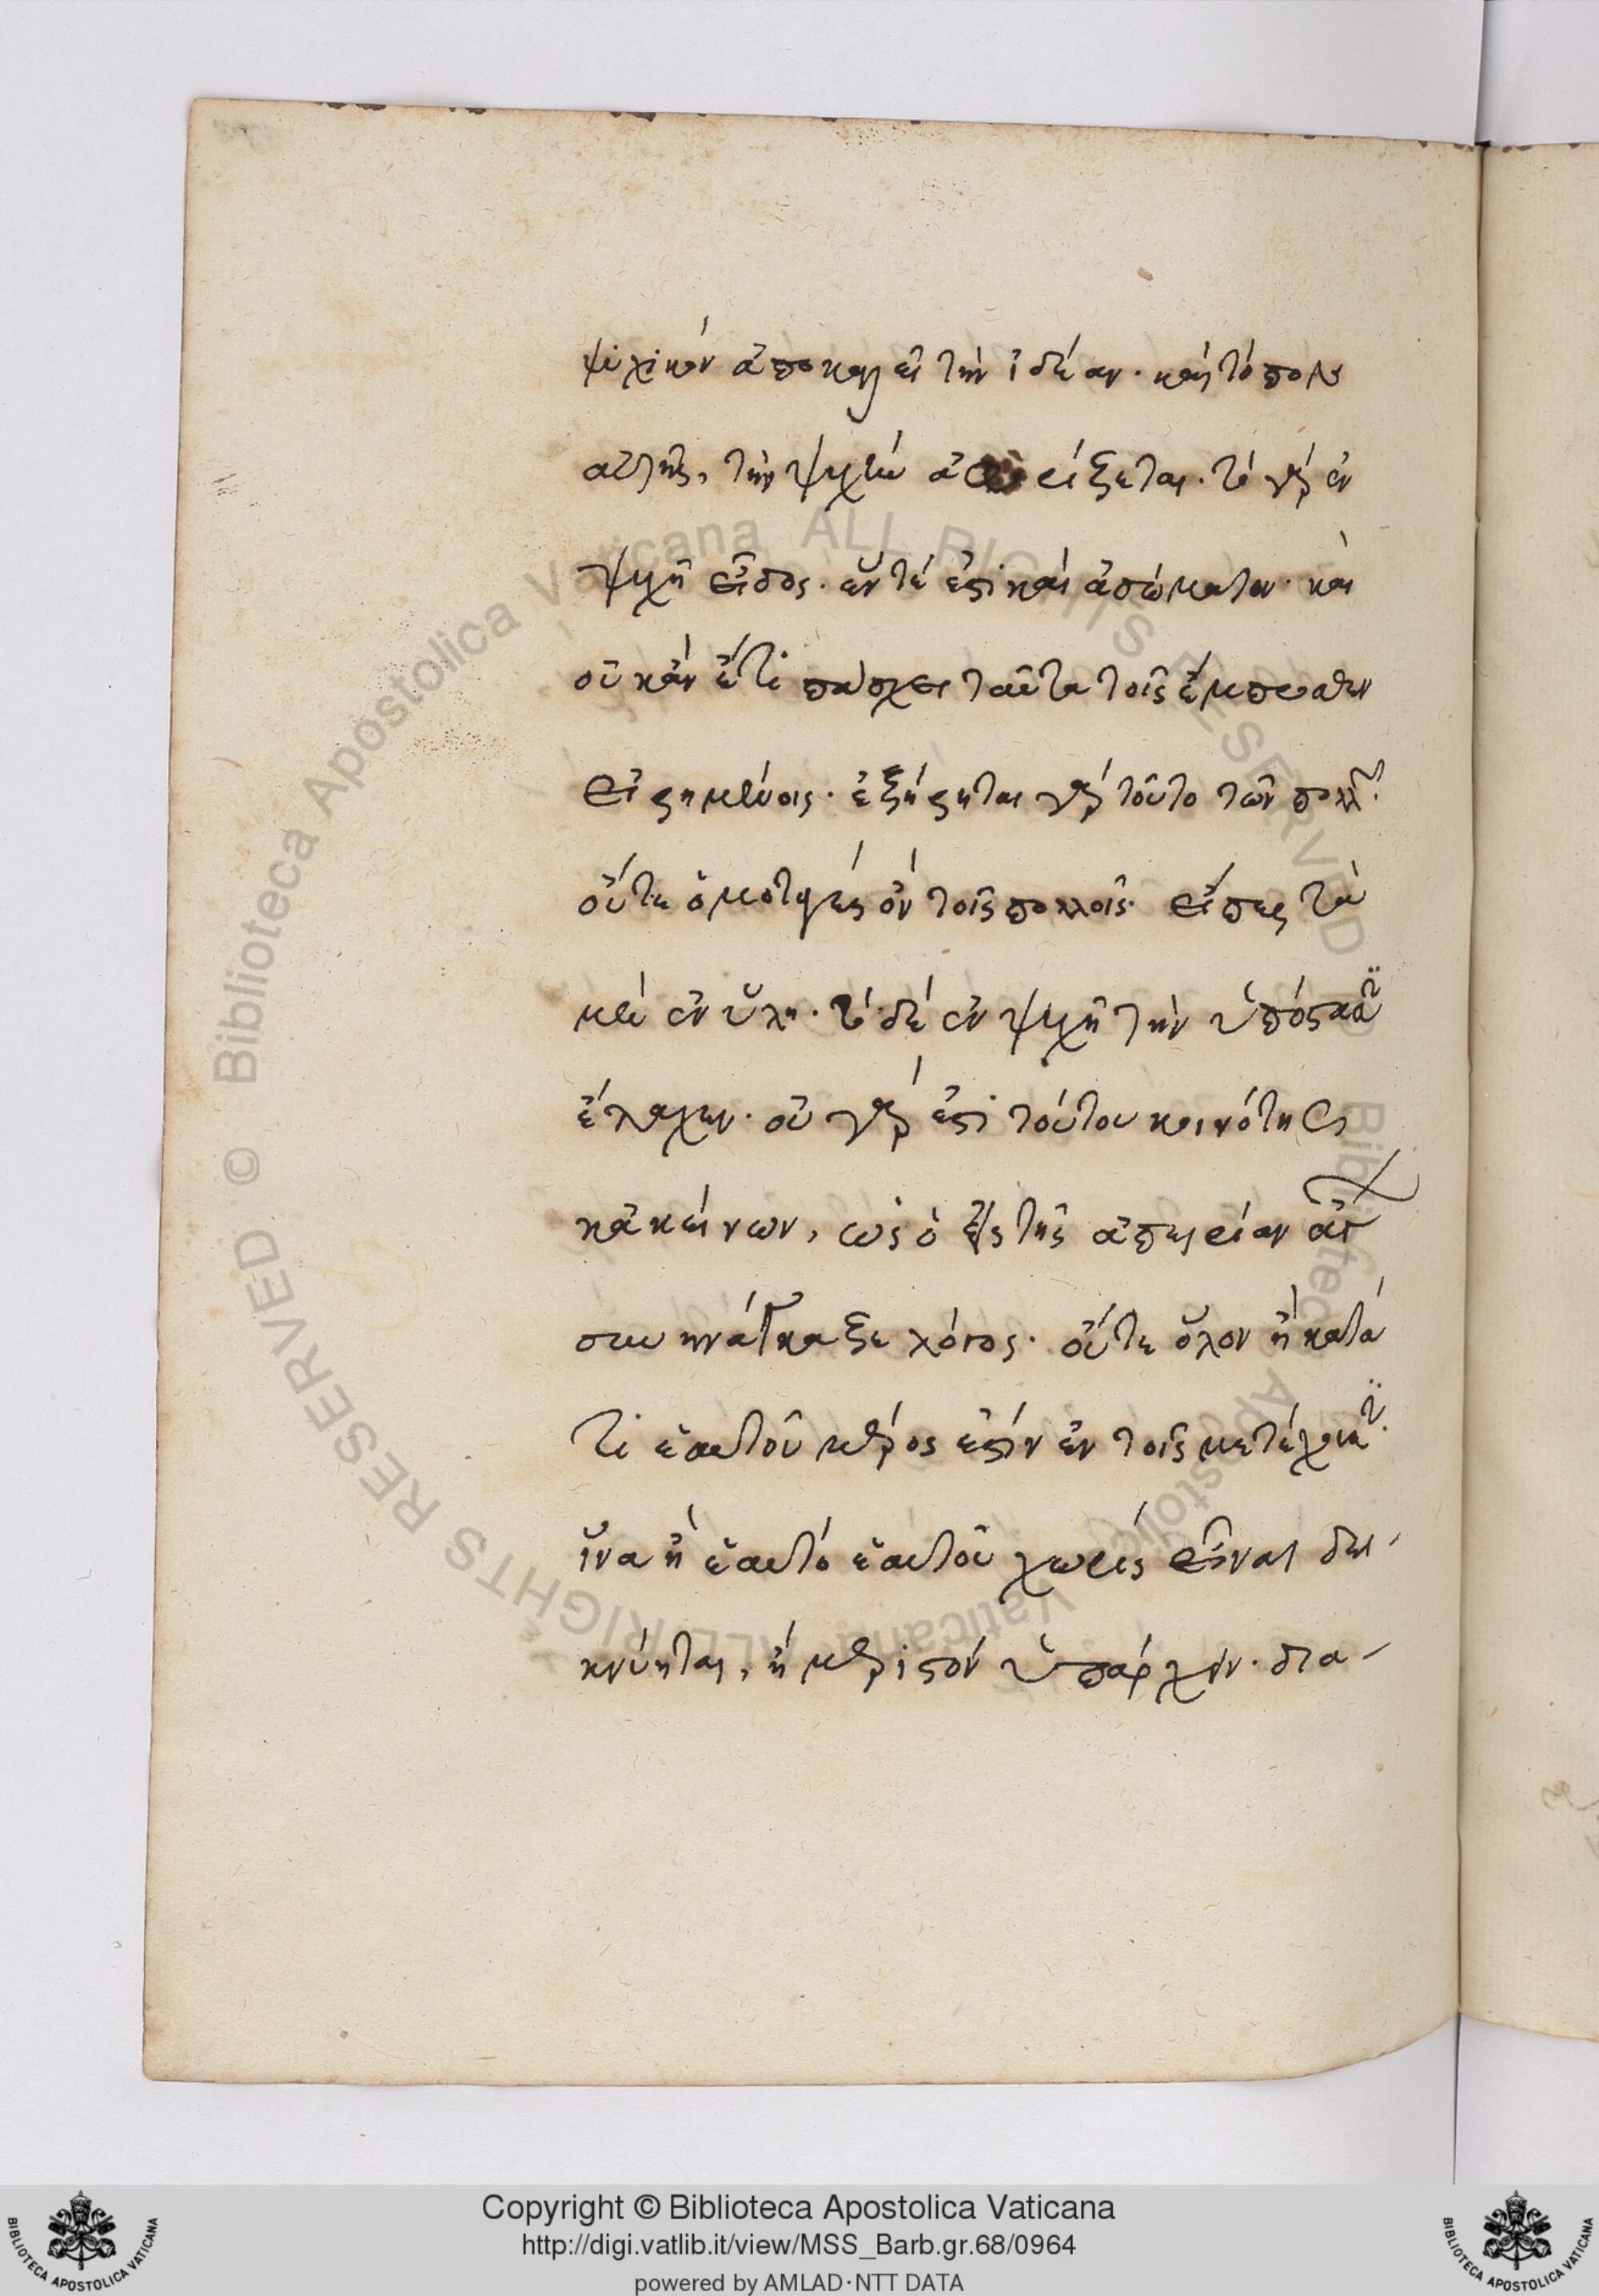 ψυχικὸν ἀποκαλεῖ τὴν ἰδέαν· καὶ τόπον
αὐτῆς, τὴν ψυχὴν εἶδος· τὸ γὰρ ἐν
ψυχῇ εἶδος· ἕν τέ ἐστι καὶ ἀσώματον· καὶ
οὐκ ἂν ἔτι πάσχει ταῦτα τοῖς ἔμπροσθεν
εἰρημένοις· ἐξῄρηται γὰρ τοῦτο τῶν πολλῶν·
οὔτε ὁμοταγὲς ὂν τοῖς πολλοῖς· εἴπερ τὰ
μὲν ἐν ὕλῃ· τὸ δὲ ἐν ψυχῇ τὴν ὑπόστασιν
ἔλαχεν· οὐ γάρ ἐστι τούτου κοινότης
κἀκείνων, ὡς ὁ ἐπὶ τῆς ἀπειρίαν
συνηνάγκαξε λόγος· οὔτε ὅλον ἢ κατά
τι ἑαυτοῦ μέρος ἐστὶν ἐν τοῖς μετέχουσιν·
ἵνα ἢ ἑαυτὸ ἑαυτοῦ χωρὶς εἶναι δει-
κνύηται, ἢ μεριστὸν ὑπάρχειν· δια-
Copyright © Biblioteca Apostolica Vaticana
http://digi.vatlib.it/view/MSS_Barb.gr.68/0964
powered by AMLAD·NTT DATA